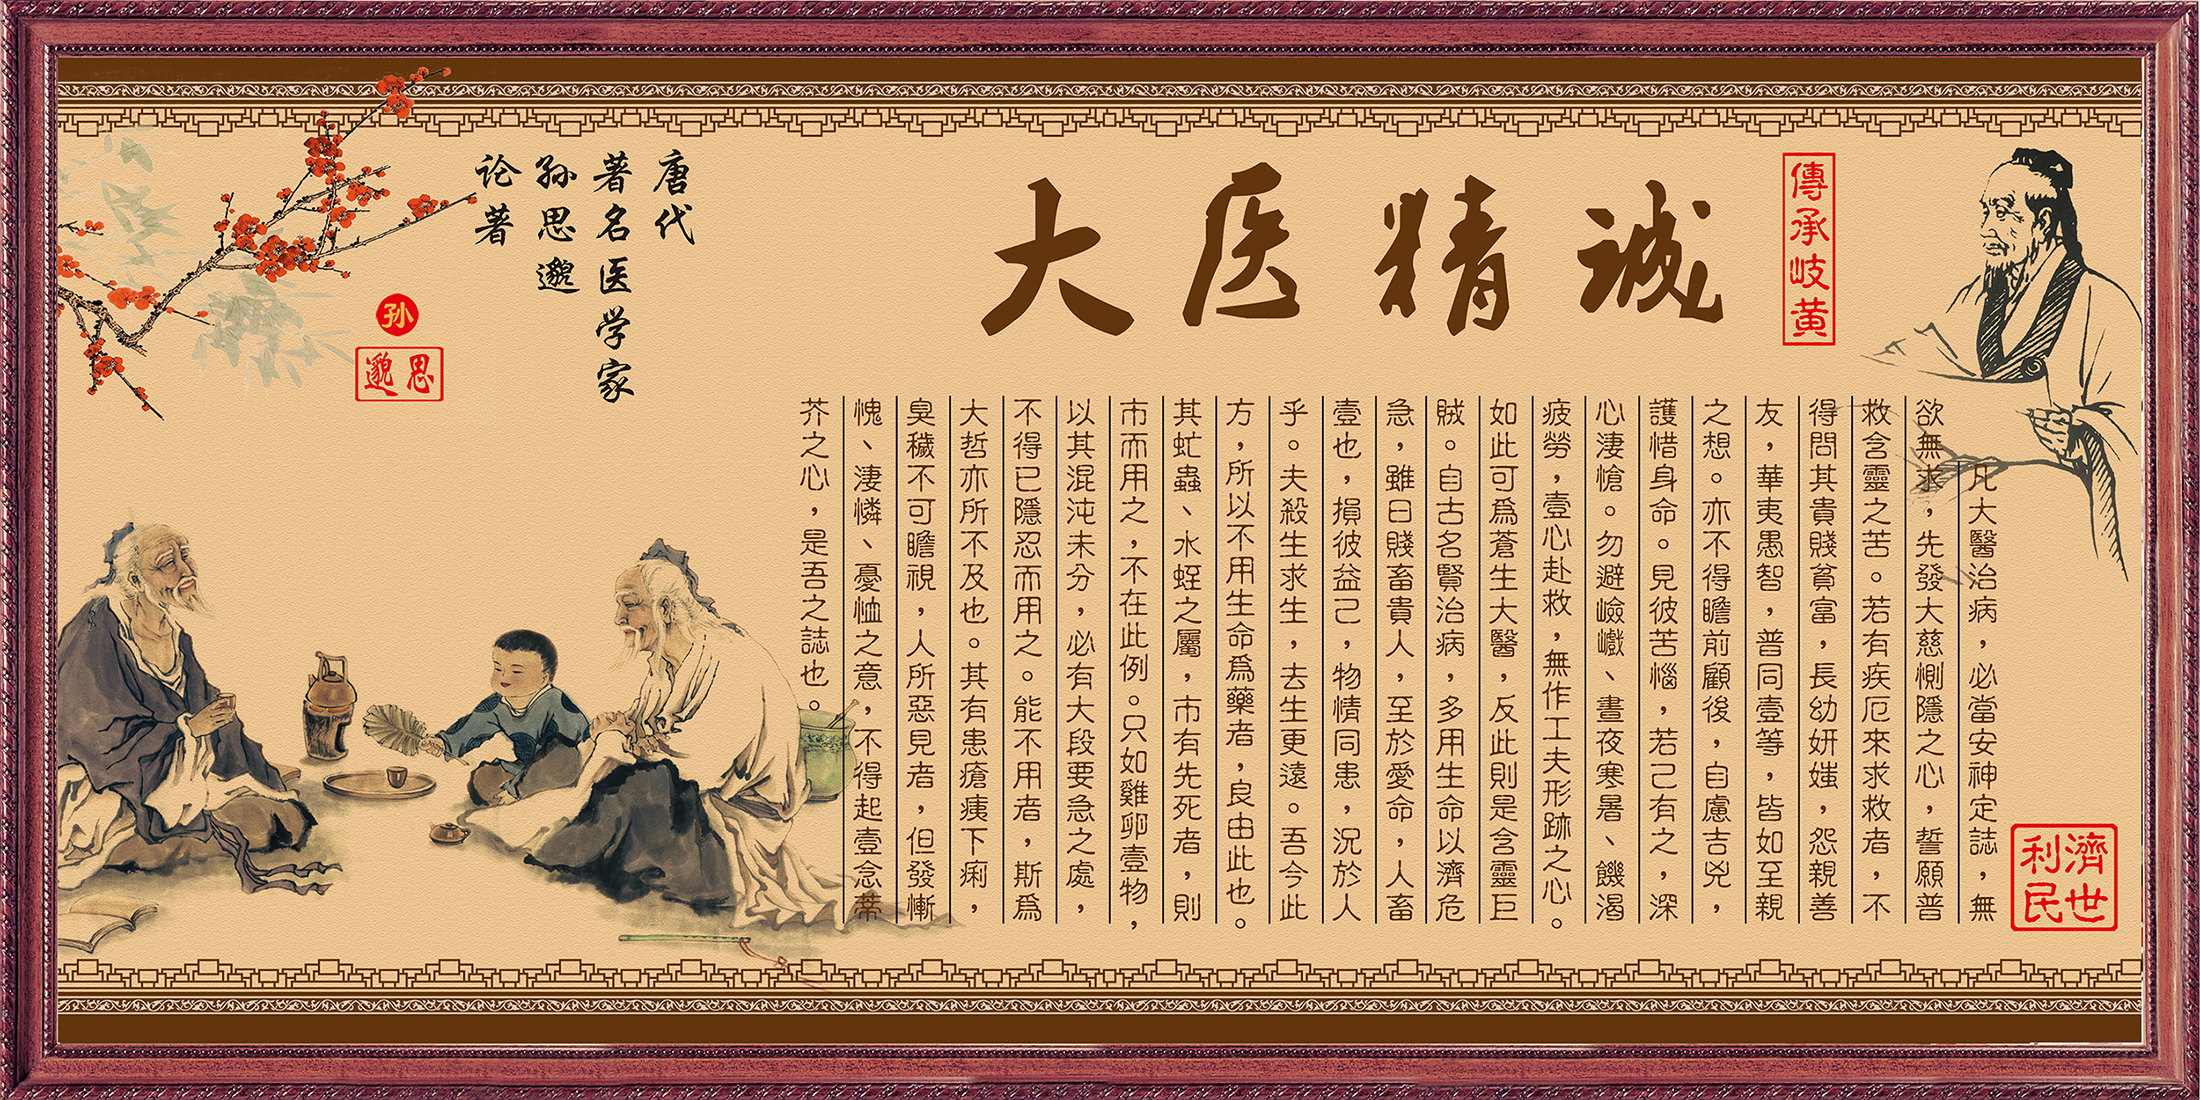 大医精诚
傳承岐黄
凡大醫治病，必當安神定誌，無
欲無求，先發大慈惻隱之心，誓願普
救含靈之苦。若有疾厄來求救者，不
得問其貴賤貧富，長幼妍媸，怨親善
友，華夷愚智，普同壹等，皆如至親
之想。亦不得瞻前顧後，自慮吉兇，
護惜身命。見彼苦惱，若己有之，深
心淒愴。勿避嶮巇、晝夜寒暑、饑渴
疲勞，壹心赴救，無作工夫形跡之心。
如此可爲蒼生大醫，反此則是含靈巨
賊。自古名賢治病，多用生命以濟危
急，雖曰賤畜貴人，至於愛命，人畜
壹也，損彼益己，物情同患，況於人
乎。夫殺生求生，去生更遠。吾今此
方，所以不用生命爲藥者，良由此也。
其虻蟲、水蛭之屬，市有先死者，則
市而用之，不在此例。只如雞卵壹物，
以其混沌未分，必有大段要急之處，
不得已隱忍而用之。能不用者，斯爲
大哲亦所不及也。其有患瘡痍下痢，
臭穢不可瞻視，人所惡見者，但發慚
愧、淒憐、憂恤之意，不得起壹念蒂
芥之心，是吾之誌也。
濟世
利民
唐代
著名医学家
孙思邈
论著
孙
思邈